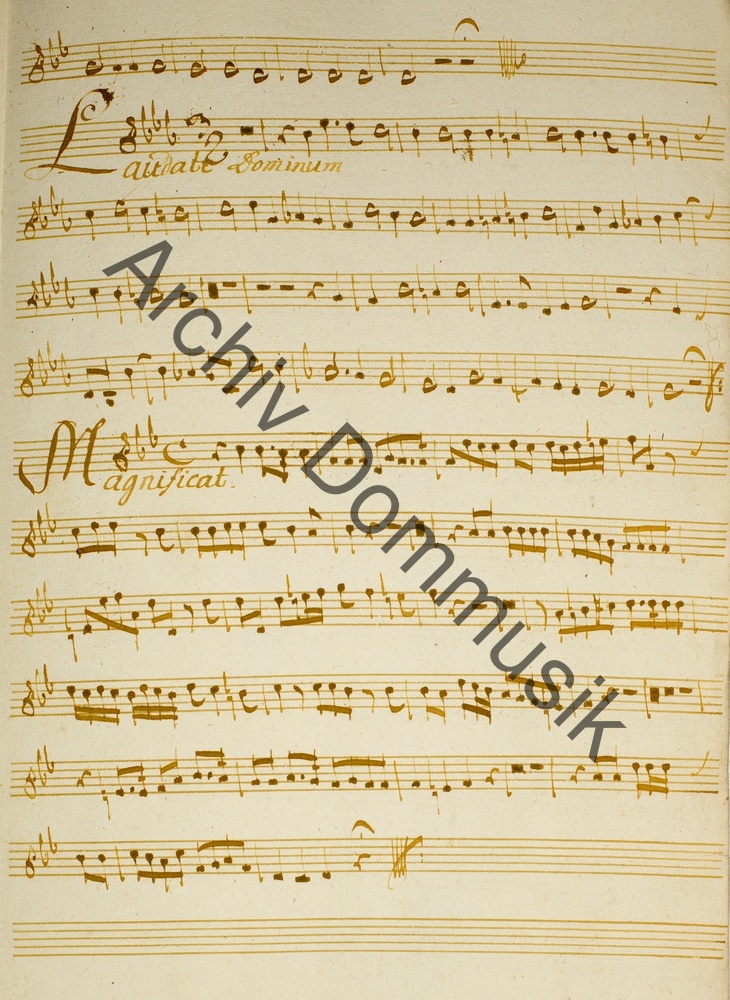 Laudate Dominum
Magnificat.
Archiv Dommusik